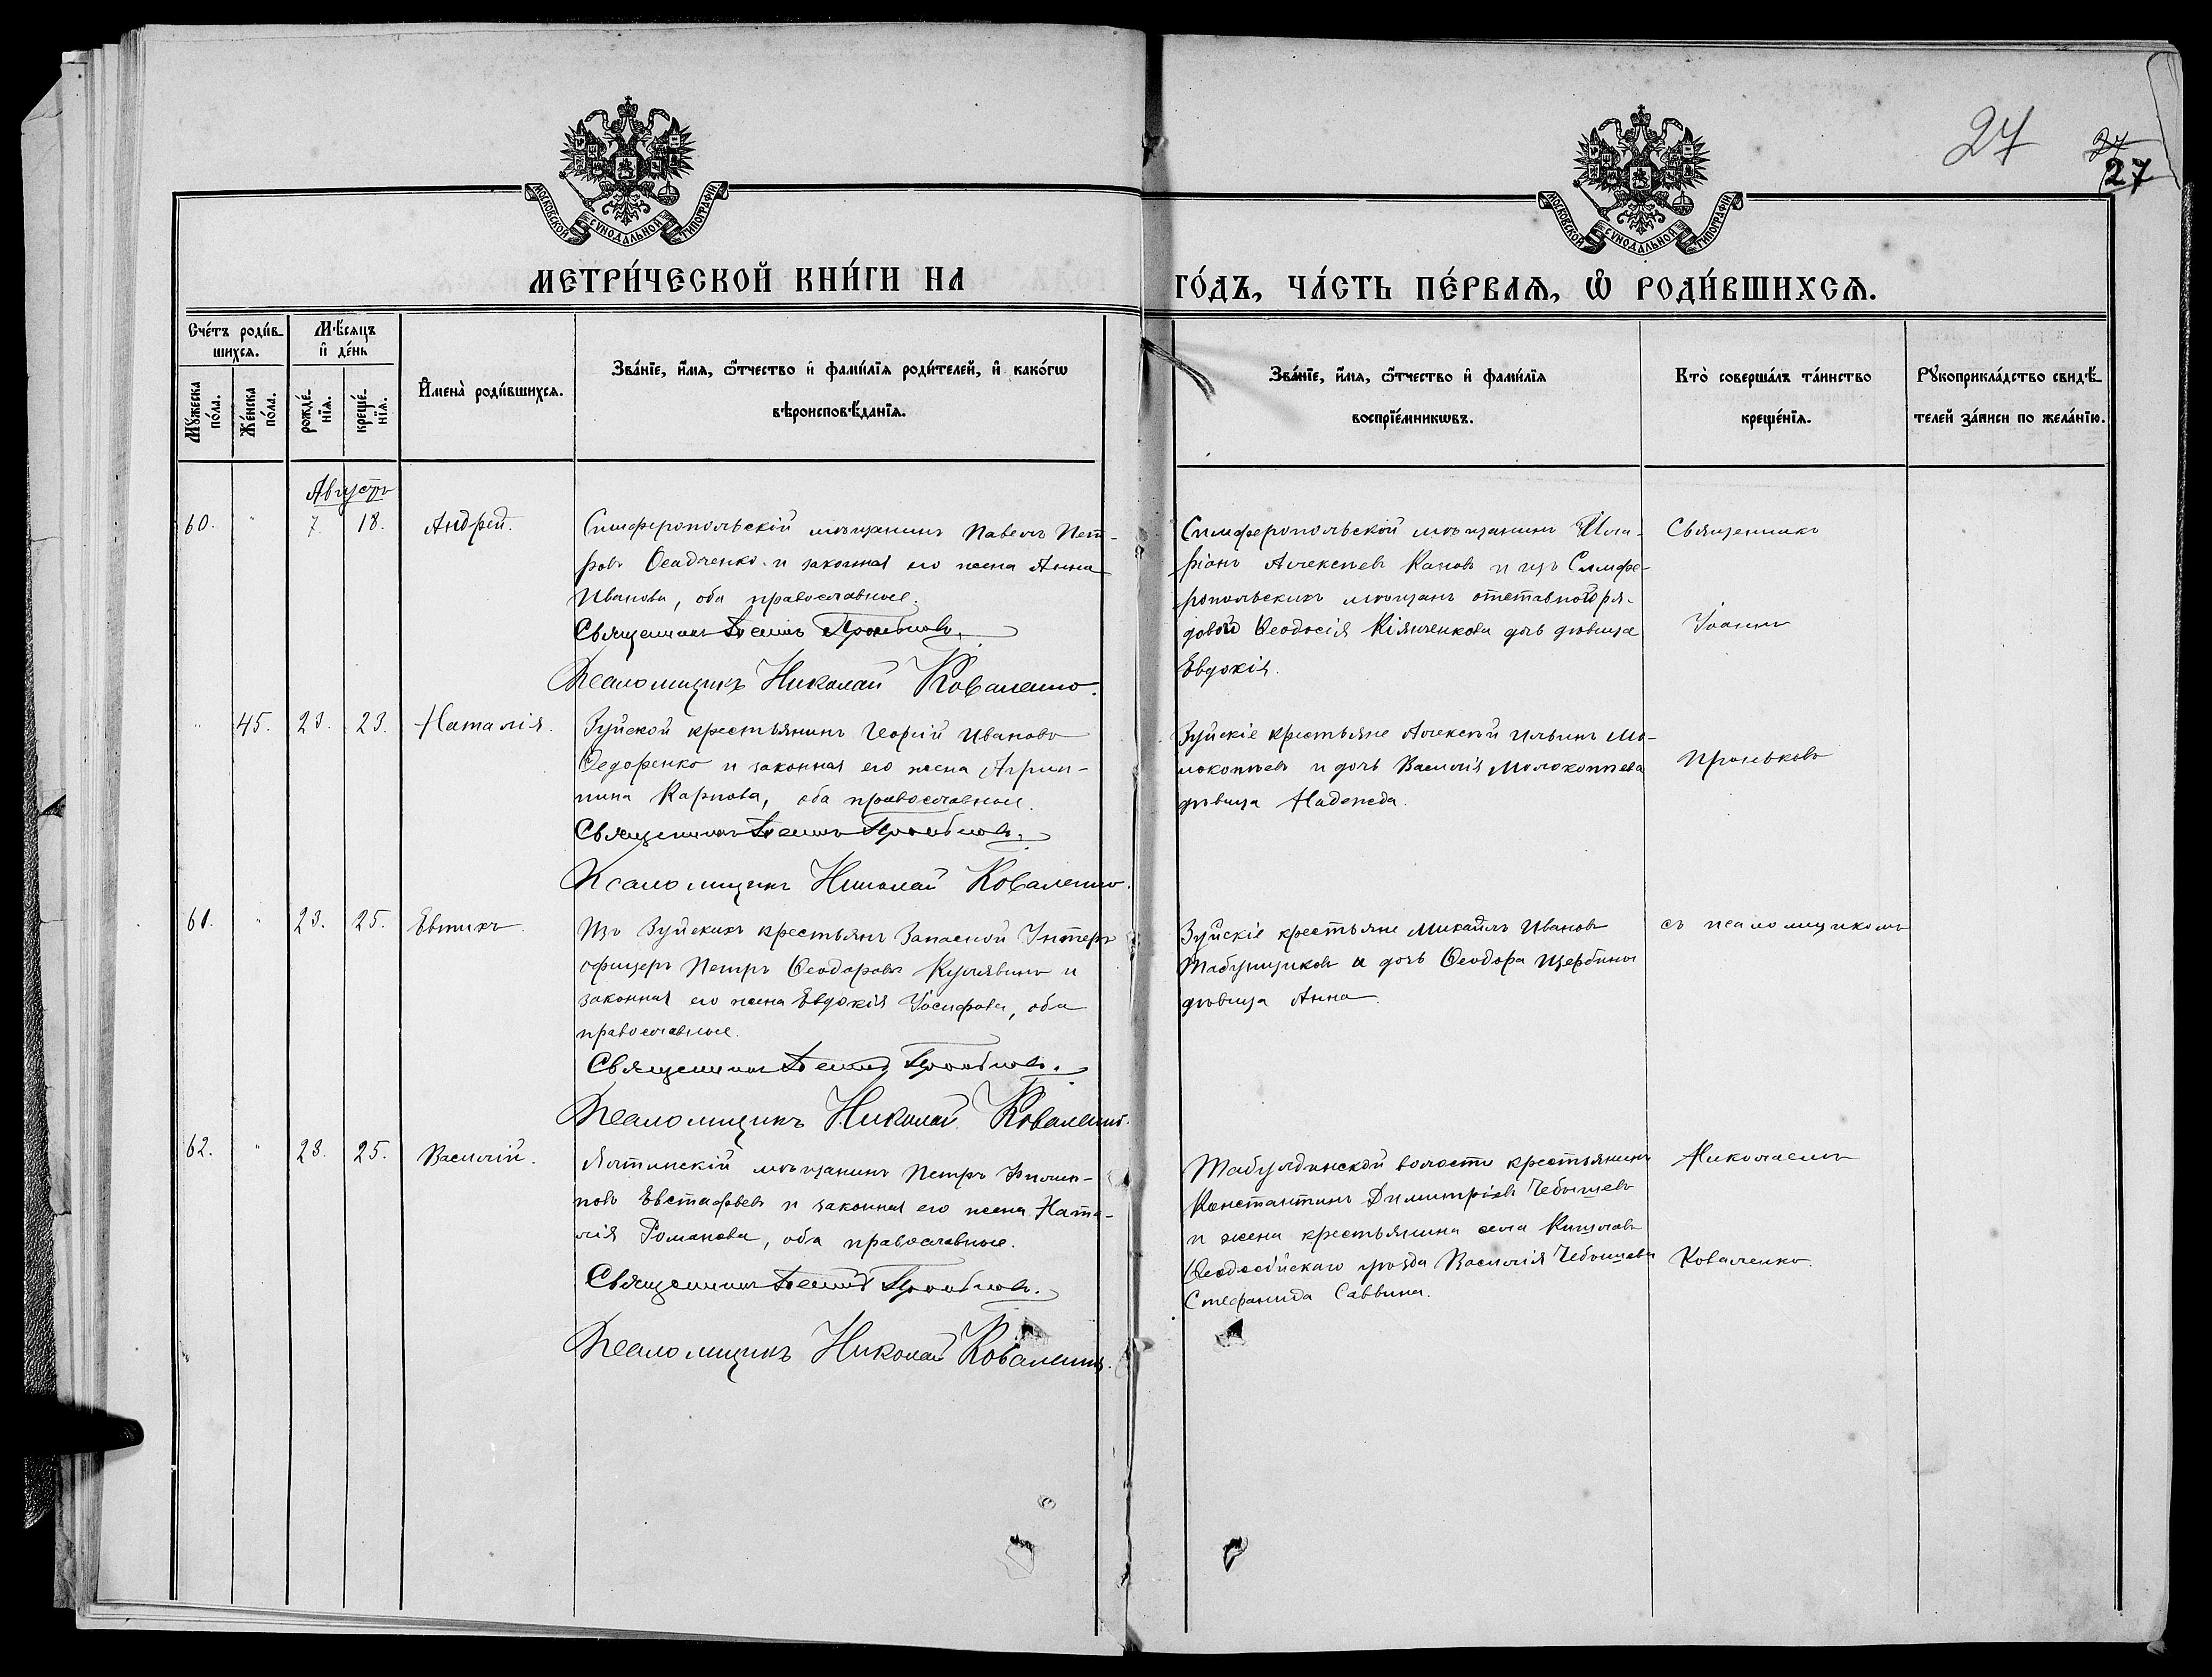 27
27
27
МОСКОВСКОЙ СѴНОДАЛЬНОЙ ТИПОГРАФІИ
МОСКОВСКОЙ СѴНОДАЛЬНОЙ ТИПОГРАФІИ
МЕТРИ́ЧЕСКОЙ КНИ́ГИ НА
ГО́ДЪ, ЧА́СТЬ ПЕ́РВАѦ, Ѡ҆ РОДИ́ВШИХСѦ.
Сче́тъ роди́в-
шихсѧ.
Мꙋ́жеска по́ла.
Же́нска по́ла.
Мѣ́сѧцъ
и҆ де́нь
рожде́-
нїѧ.
креще́-
нїѧ.
И҆мена̀ роди́вшихсѧ.
Зва́нїе, и҆́мѧ, ѻ҆́тчество и҆ фами́лїѧ роди́телей, и҆ како́гѡ
вѣроисповѣ́данїѧ.
Зва́нїе, и҆́мѧ, ѻ҆́тчество и҆ фами́лїѧ
воспрїе́мникѡвъ.
Кто̀ соверша́лъ та́инство
креще́нїѧ.
Рꙋкоприкла́дство свидѣ́-
телей за́писи по жела́нїю.
Августъ
60. " 7. 18. Андрей.
Симферопольскій мѣщанинъ Павелъ Пет-
ровъ Осадченко и законная его жена Анна
Иванова, оба православные.
Священникъ Іоаннъ Проньковъ.
Псаломщикъ Николай Коваленко.
Симферопольской мѣщанинъ Ила-
ріонъ Алексѣевъ и изъ Симфе-
ропольскихъ мѣщанъ отставного ря-
дового Ѳеодосія дочь дѣвица
Евдокія.
Священникъ
Іоаннъ
" 45. 23. 23. Наталія.
Зуйской крестьянинъ Георгій Ивановъ
Ѳедоренко и законная его жена Агрип-
пина Карпова, оба православные.
Священникъ Іоаннъ Проньковъ.
Псаломщикъ Николай Коваленко.
Зуйскіе крестьяне Алексѣй Ильинъ Мо-
локоѣдовъ и дочь Василія
дѣвица Надежда.
Проньковъ
61. " 23. 25. Евтихъ.
Изъ Зуйскихъ крестьянъ Запасной Унтеръ
офицеръ Петръ Ѳеодоровъ и
законная его жена Евдокія Іосифова, оба
православные.
Священникъ Іоаннъ Проньковъ.
Псаломщикъ Николай Коваленко.
Зуйскіе крестьяне Михаилъ Ивановъ
Табунщиковъ и дочь Ѳеодора Щербины
дѣвица Анна.
съ псаломщикомъ
62. " 23. 25. Василій.
Ялтинскій мѣщанинъ Петръ Филип-
повъ Евстафьевъ и законная его жена Ната-
лія Романова, оба православные.
Священникъ Іоаннъ Проньковъ.
Псаломщикъ Николай Коваленко.
Табулдинской волости крестьянинъ
Константинъ Димитріевъ Чебышевъ
и жена крестьянина села
Ѳеодосійскаго уѣзда Василія Чебышева
Стефанида Саввина.
Николаемъ
Коваленко.